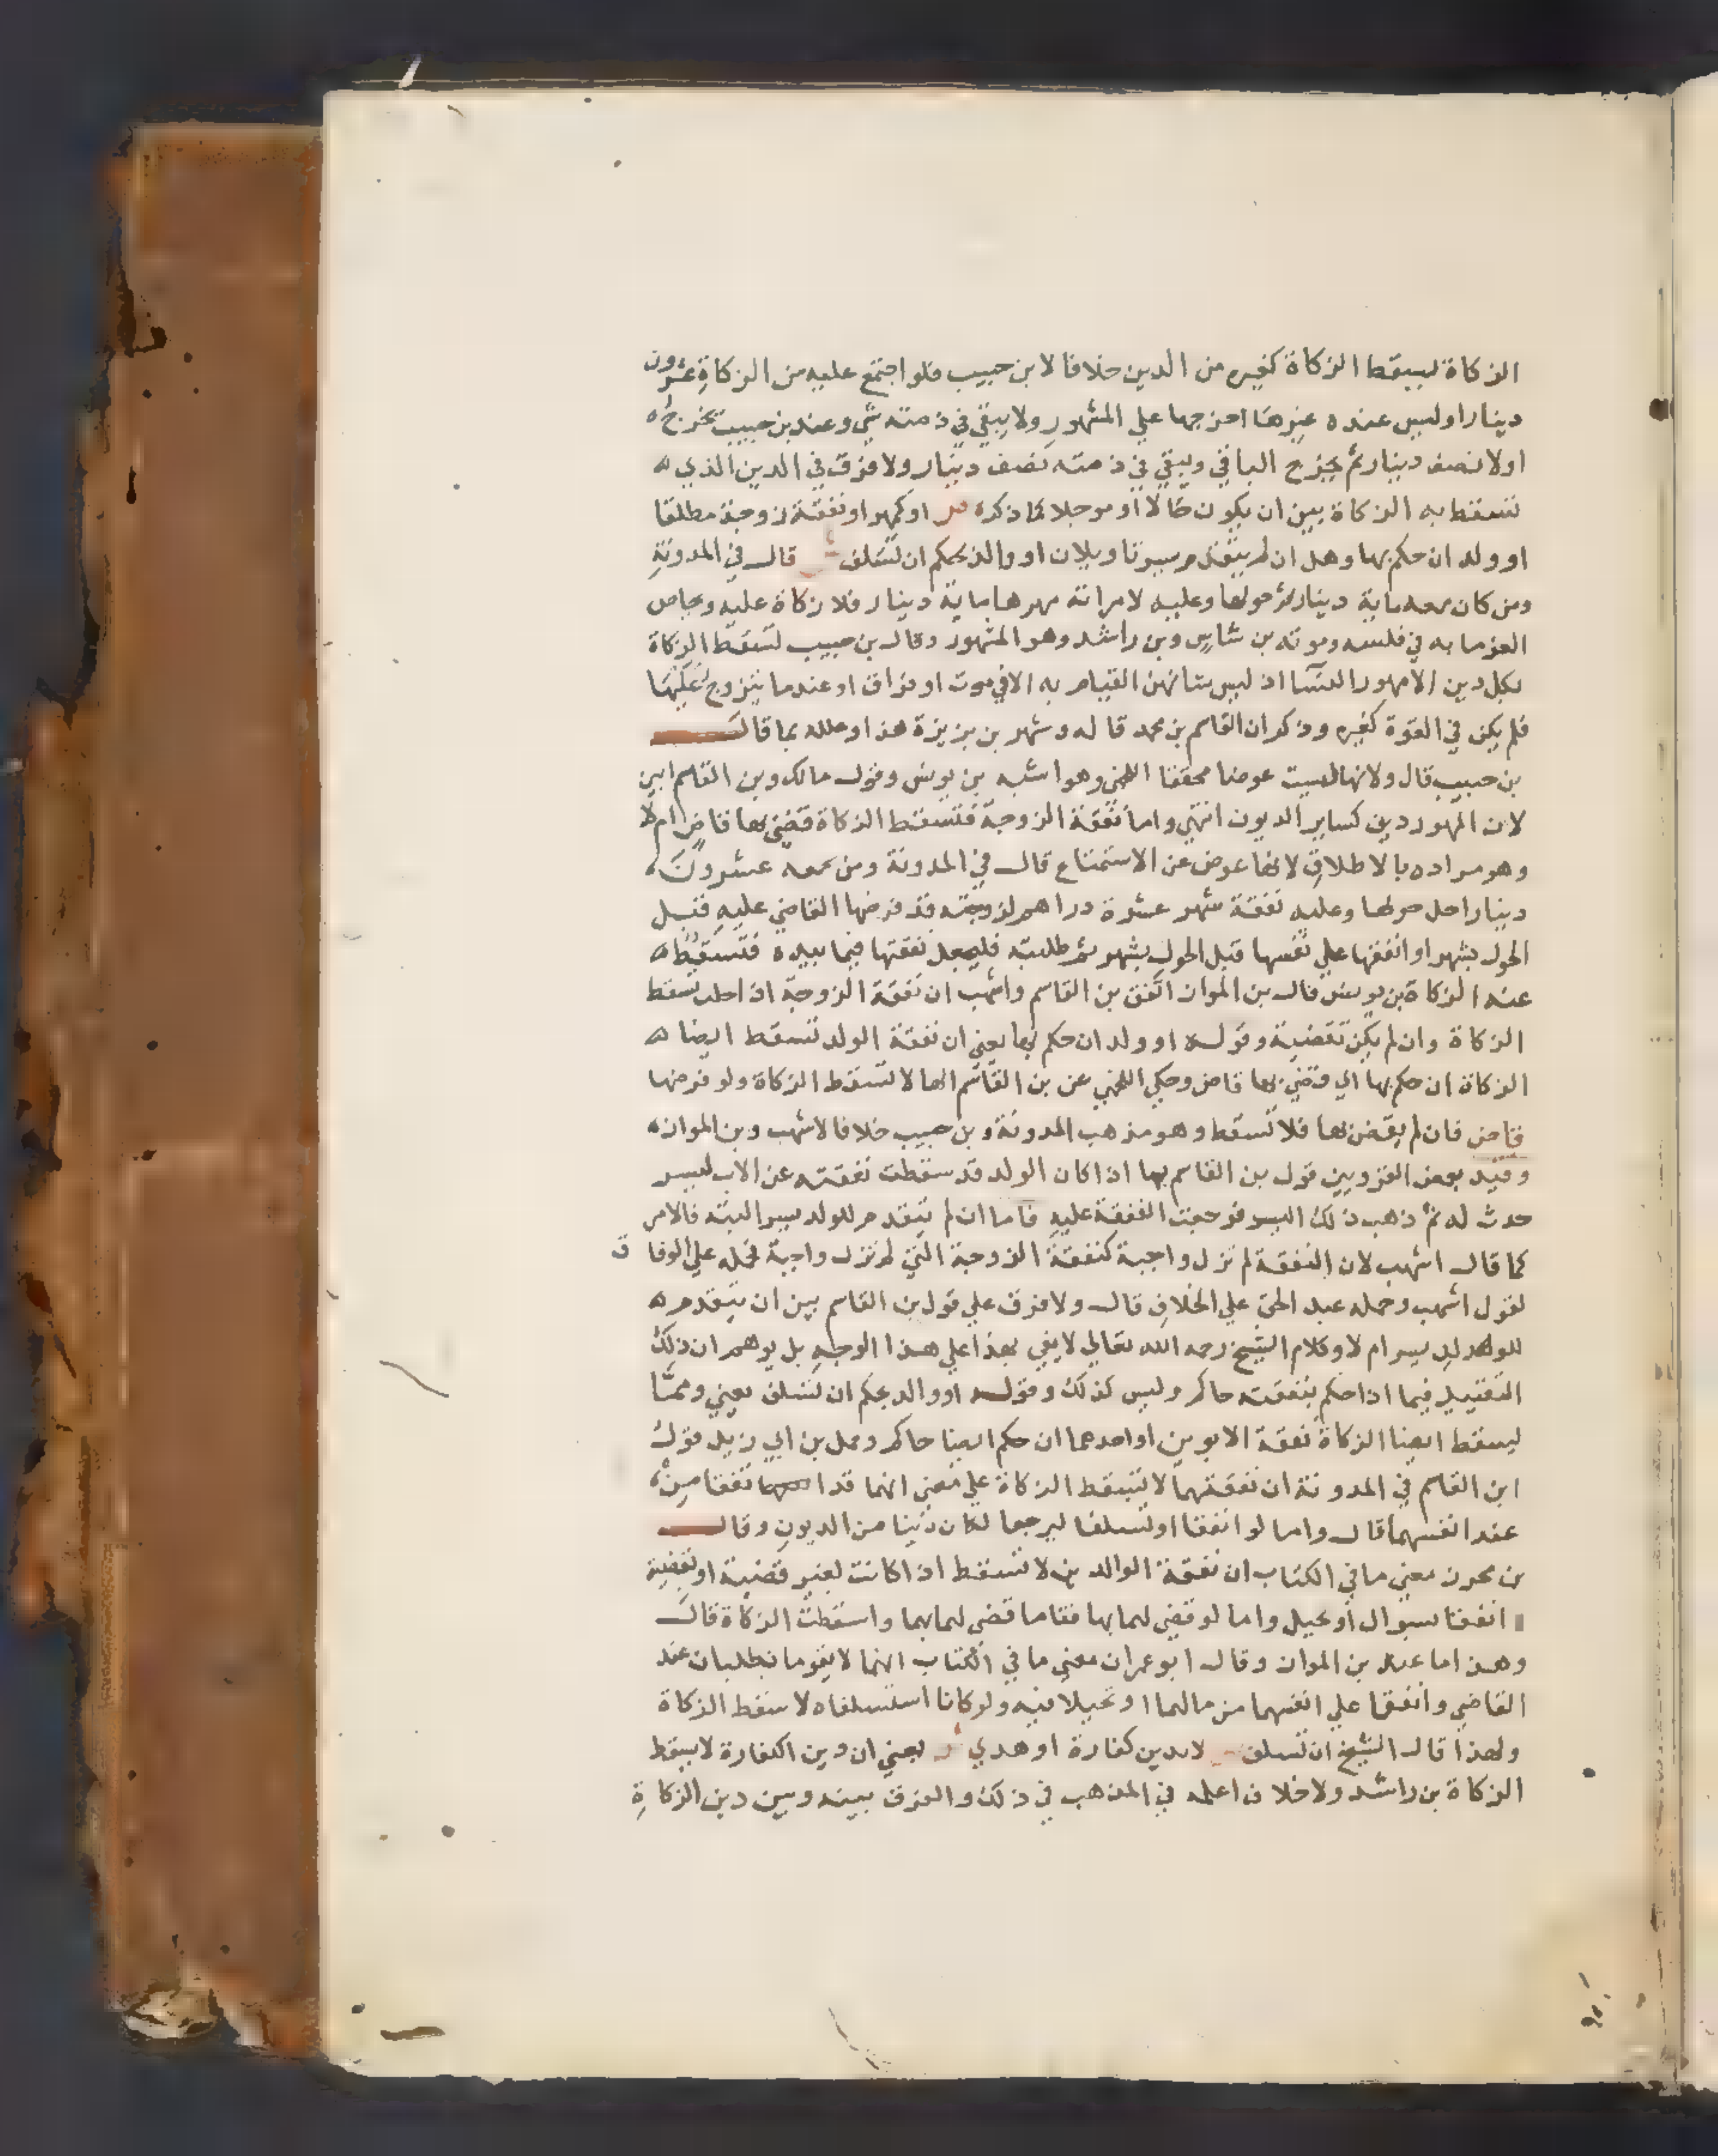 الزكاة ليسقط الزكاة كغيره من الدين خلافا لابن حبيب فلو اجتمع عليه من الزكاة عشرون
دينارا وليس عنده غيرها اخرجها علي المشهور ولا يبقي في ذمته شي وعند بن حبيب يخرج
اولا نصف دينار ثم يخرج الباقي ويبقي في ذمته نصف دينار ولا فرق في الدين الذي
تسقط به الزكاة بين ان يكون حالا او موجلا كما ذكره او كمهر او نفقة زوجة مطلقا
او ولد ان حكم بها وهل ان لم يتقدم يسر تاويلان او والد بحكم ان تسلف قال في المدونة
ومن كان معه ماية دينار تم حولها وعليه لامراته مهرها ماية دينار فلا زكاة عليه وتحاص
الغرما به في فلسه وموته بن شاس وبن راشد وهو المشهور وقال بن حبيب تسقط الزكاة
بكل دين الا مهور النسا اذ ليس شانهن القيام به الا في موت او فراق او عندما يتزوج عليها
فلم يكن في القوة كغيره وذكر ان القاسم بن محمد قاله وشهر بن بزيزة هذا وعلله بما قال
بن حبيب قال ولانها ليست عوضا محققا اللخمي وهو اشبه بن يونس وقول مالك وبن القاسم ابين
لان المهور دين كساير الديون انتهي واما نفقة الزوجة فتسقط الزكاة قضي بها قاض ام لا
وهو مراده بالاطلاق لانها عوض عن الاستمتاع قال في المدونة ومن معه عشرون
دينارا حل حولها وعليه نفقة شهر عشرة دراهم لزوجته قد فرضها القاضي عليه قبل
الحول بشهر او انفقتها علي نفسها قبل الحول بشهر ثم طلبته فليجعل نفقتها فيما بيده فتسقط
عنه الزكاة بن يونس قال بن المواز اتفق بن القاسم واشهب ان نفقة الزوجة اذا حلت تسقط
الزكاة وان لم يكن بقضية وقوله او ولد ان حكم بها يعني ان نفقة الولد تسقط ايضا
الزكاة ان حكم بها اي قضي بها قاض وحكي اللخمي عن بن القاسم انها لا تسقط الزكاة ولو فرضها
قاض فان لم يقض بها فلا تسقط وهو مذهب المدونة وبن حبيب خلافا لاشهب وبن المواز
وقيد بعض القرويين قول بن القاسم بما اذا كان الولد قد سقطت نفقته عن الاب ليسر
حدث له ثم ذهب ذلك اليسر فرجعت النفقة عليه فاما ان لم يتقدم للولد يسر البته فالامر
كما قال اشهب لان النفقة لم تزل واجبة كنفقة الزوجة التي لم تزل واجبة فحمله علي الوفاق
لقول اشهب وحمله عبد الحق علي الخلاف قال ولا فرق علي قول بن القاسم بين ان يتقدم
للولد يسر ام لا وكلام الشيخ رحمه الله تعالي لا يفي بهذا علي هذا الوجه بل يوهم ان ذلك
التقييد فيما اذا حكم بنفقته حاكم وليس كذلك وقوله او والد بحكم ان تسلف يعني ومما
يسقط ايضا الزكاة نفقة الابوين او احدهما ان حكم ايضا حاكم وحمل بن ابي زيد قول
ابن القاسم في المدونة ان نفقتهما لا تسقط الزكاة علي معني انهما قد انفقا من
عند انفسهما قال واما لو انفقا او تسلفا ليرجعا لكان دينا من الديون وقال
بن محرز معني ما في الكتاب ان نفقة الوالدين لا تسقط اذا كانت لغير قضية او بقضية
انفقا بسوال او تحيل واما لو قضي لهما بها فقاما قضي لهما بهما واسقطت الزكاة قال
وهذا اما عند بن المواز وقال ابو عمران معني ما في الكتاب انهما لا يقوما بطلبان عند
القاضي وانفقا علي انفسهما من مالهما او تحيلا فيه ولو كانا استسلفاه لاسقط الزكاة
ولهذا قال الشيخ ان تسلف لا بدين كفارة او هدي يعني ان دين الكفارة لا يسقط
الزكاة بن راشد ولا خلاف اعلمه في المذهب في ذلك والفرق بينه وبين دين الزكاة